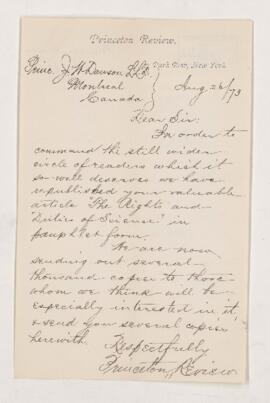 Princeton Review.
Park Row, New York
Princ. J W Dawson LLD.
Montreal
Canada
Aug 26/79
Dear Sir:
In order to
command the still wider
circle of readers which it
so well deserves we have
republished your valuable
article "The Rights and
Duties of Science" in
pamphlet form.
We are now
sending out several
thousand copies to those
whom we think will be
especially interested in it,
& send you several copies
herewith.
Respectfully
Princeton Review